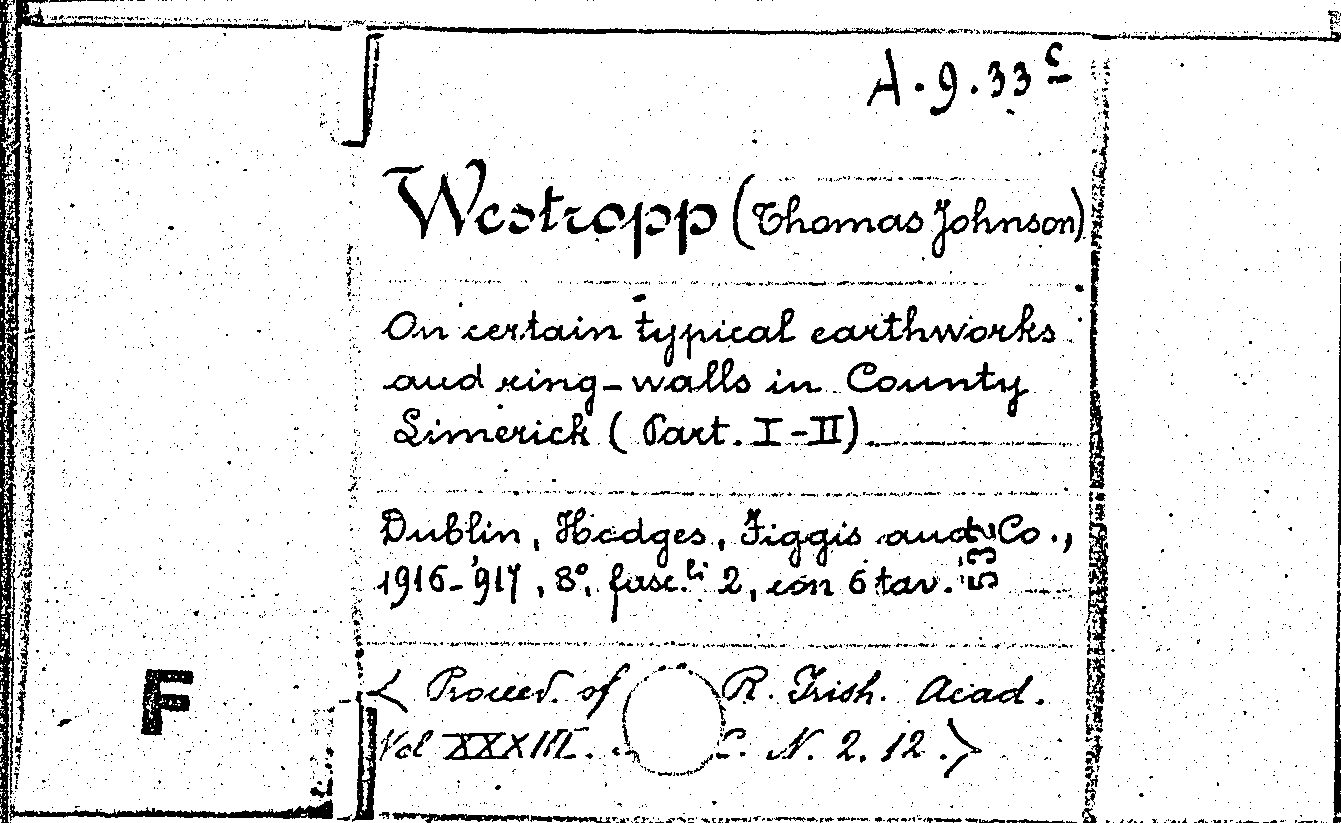 A. 9. 33 c
Westropp (Thomas Johnson)
On certain typical earthworks
and ring-walls in County
Limerick ( Part. I-II).
Dublin, Hodges, Figgis and Co.,
1916-'917, 8°, fasc.li 2, con 6 tav.
F
< Proceed. of R. Irish. Acad.
Vol XXXIII. C. N. 2. 12. >